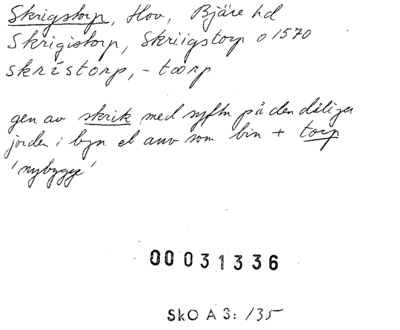 Skrigstorp, Hov, Bjäre hd
Skrigistorp, Skriigstorp o 1570
skrístorp, - tærp
gen av skrik med syftn på den dåliga
jorden i byn el anv som bin + torp
'nybygge'
00031336
SkO A 3: 135